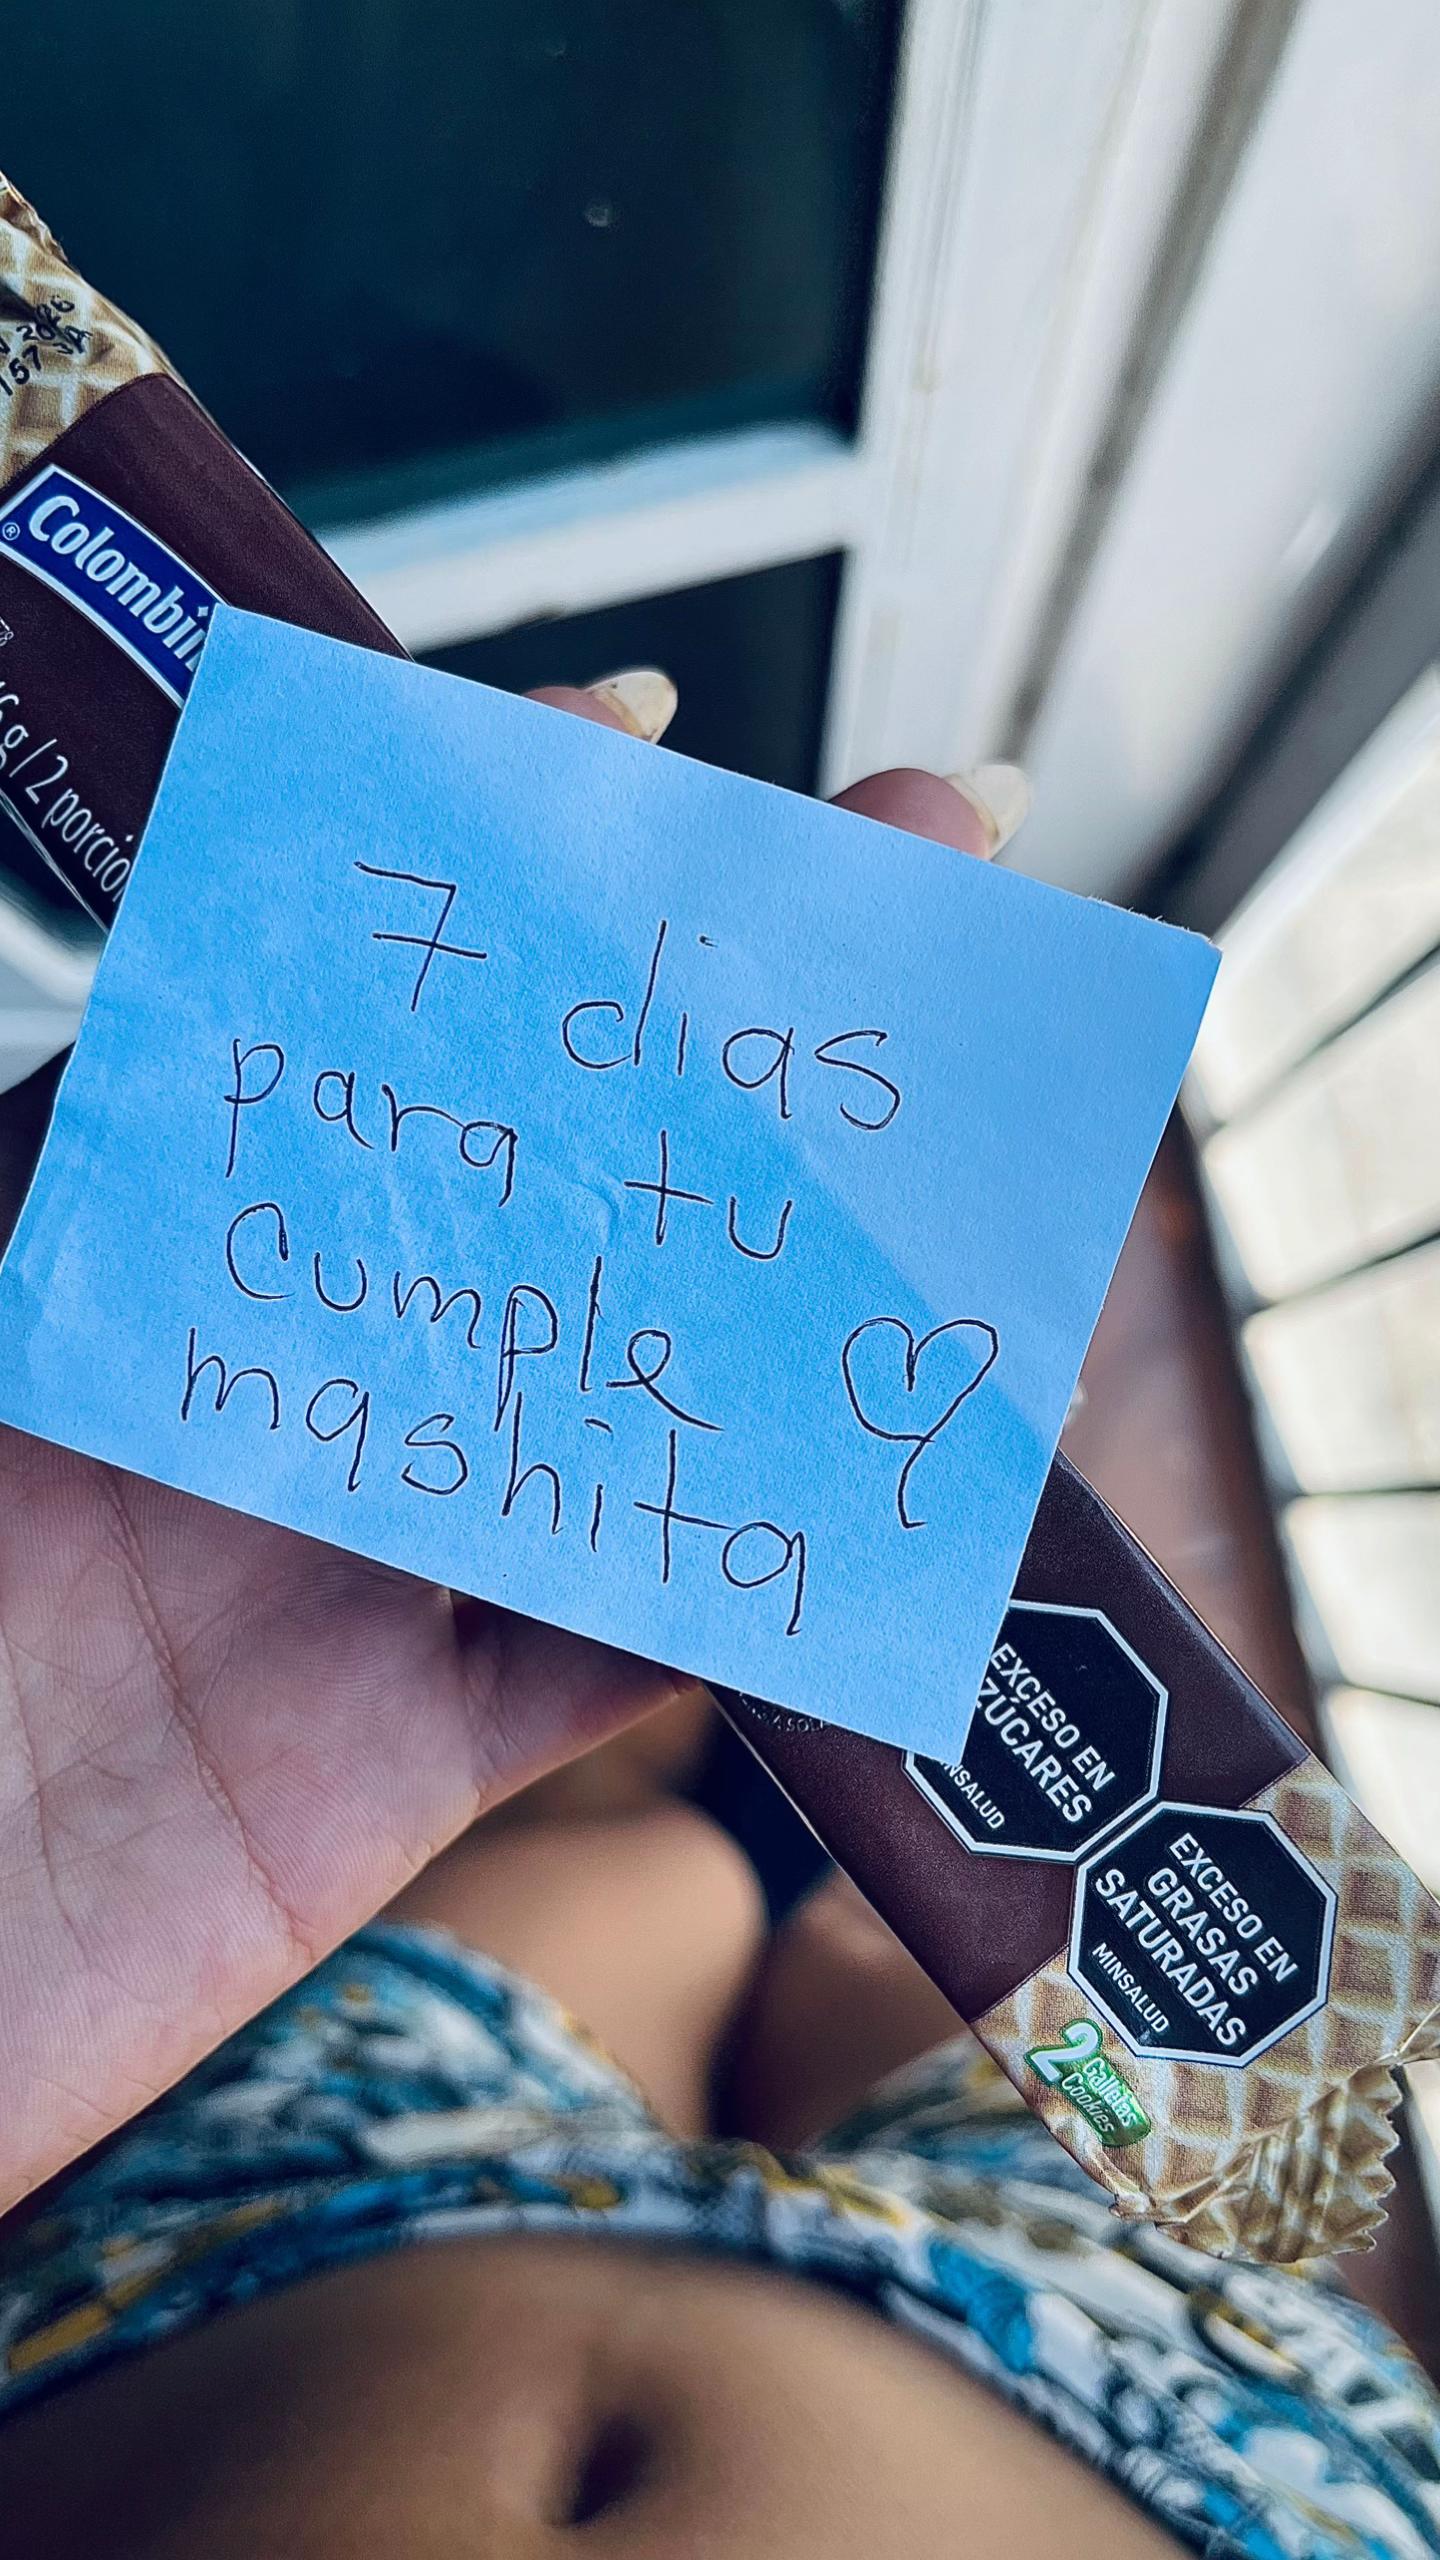 Colombin
6 g / 2 porcion
7 dias
para tu
cumple
mashita
EXCESO EN
AZÚCARES
MINSALUD
EXCESO EN
GRASAS
SATURADAS
MINSALUD
2 Galletas
Cookies